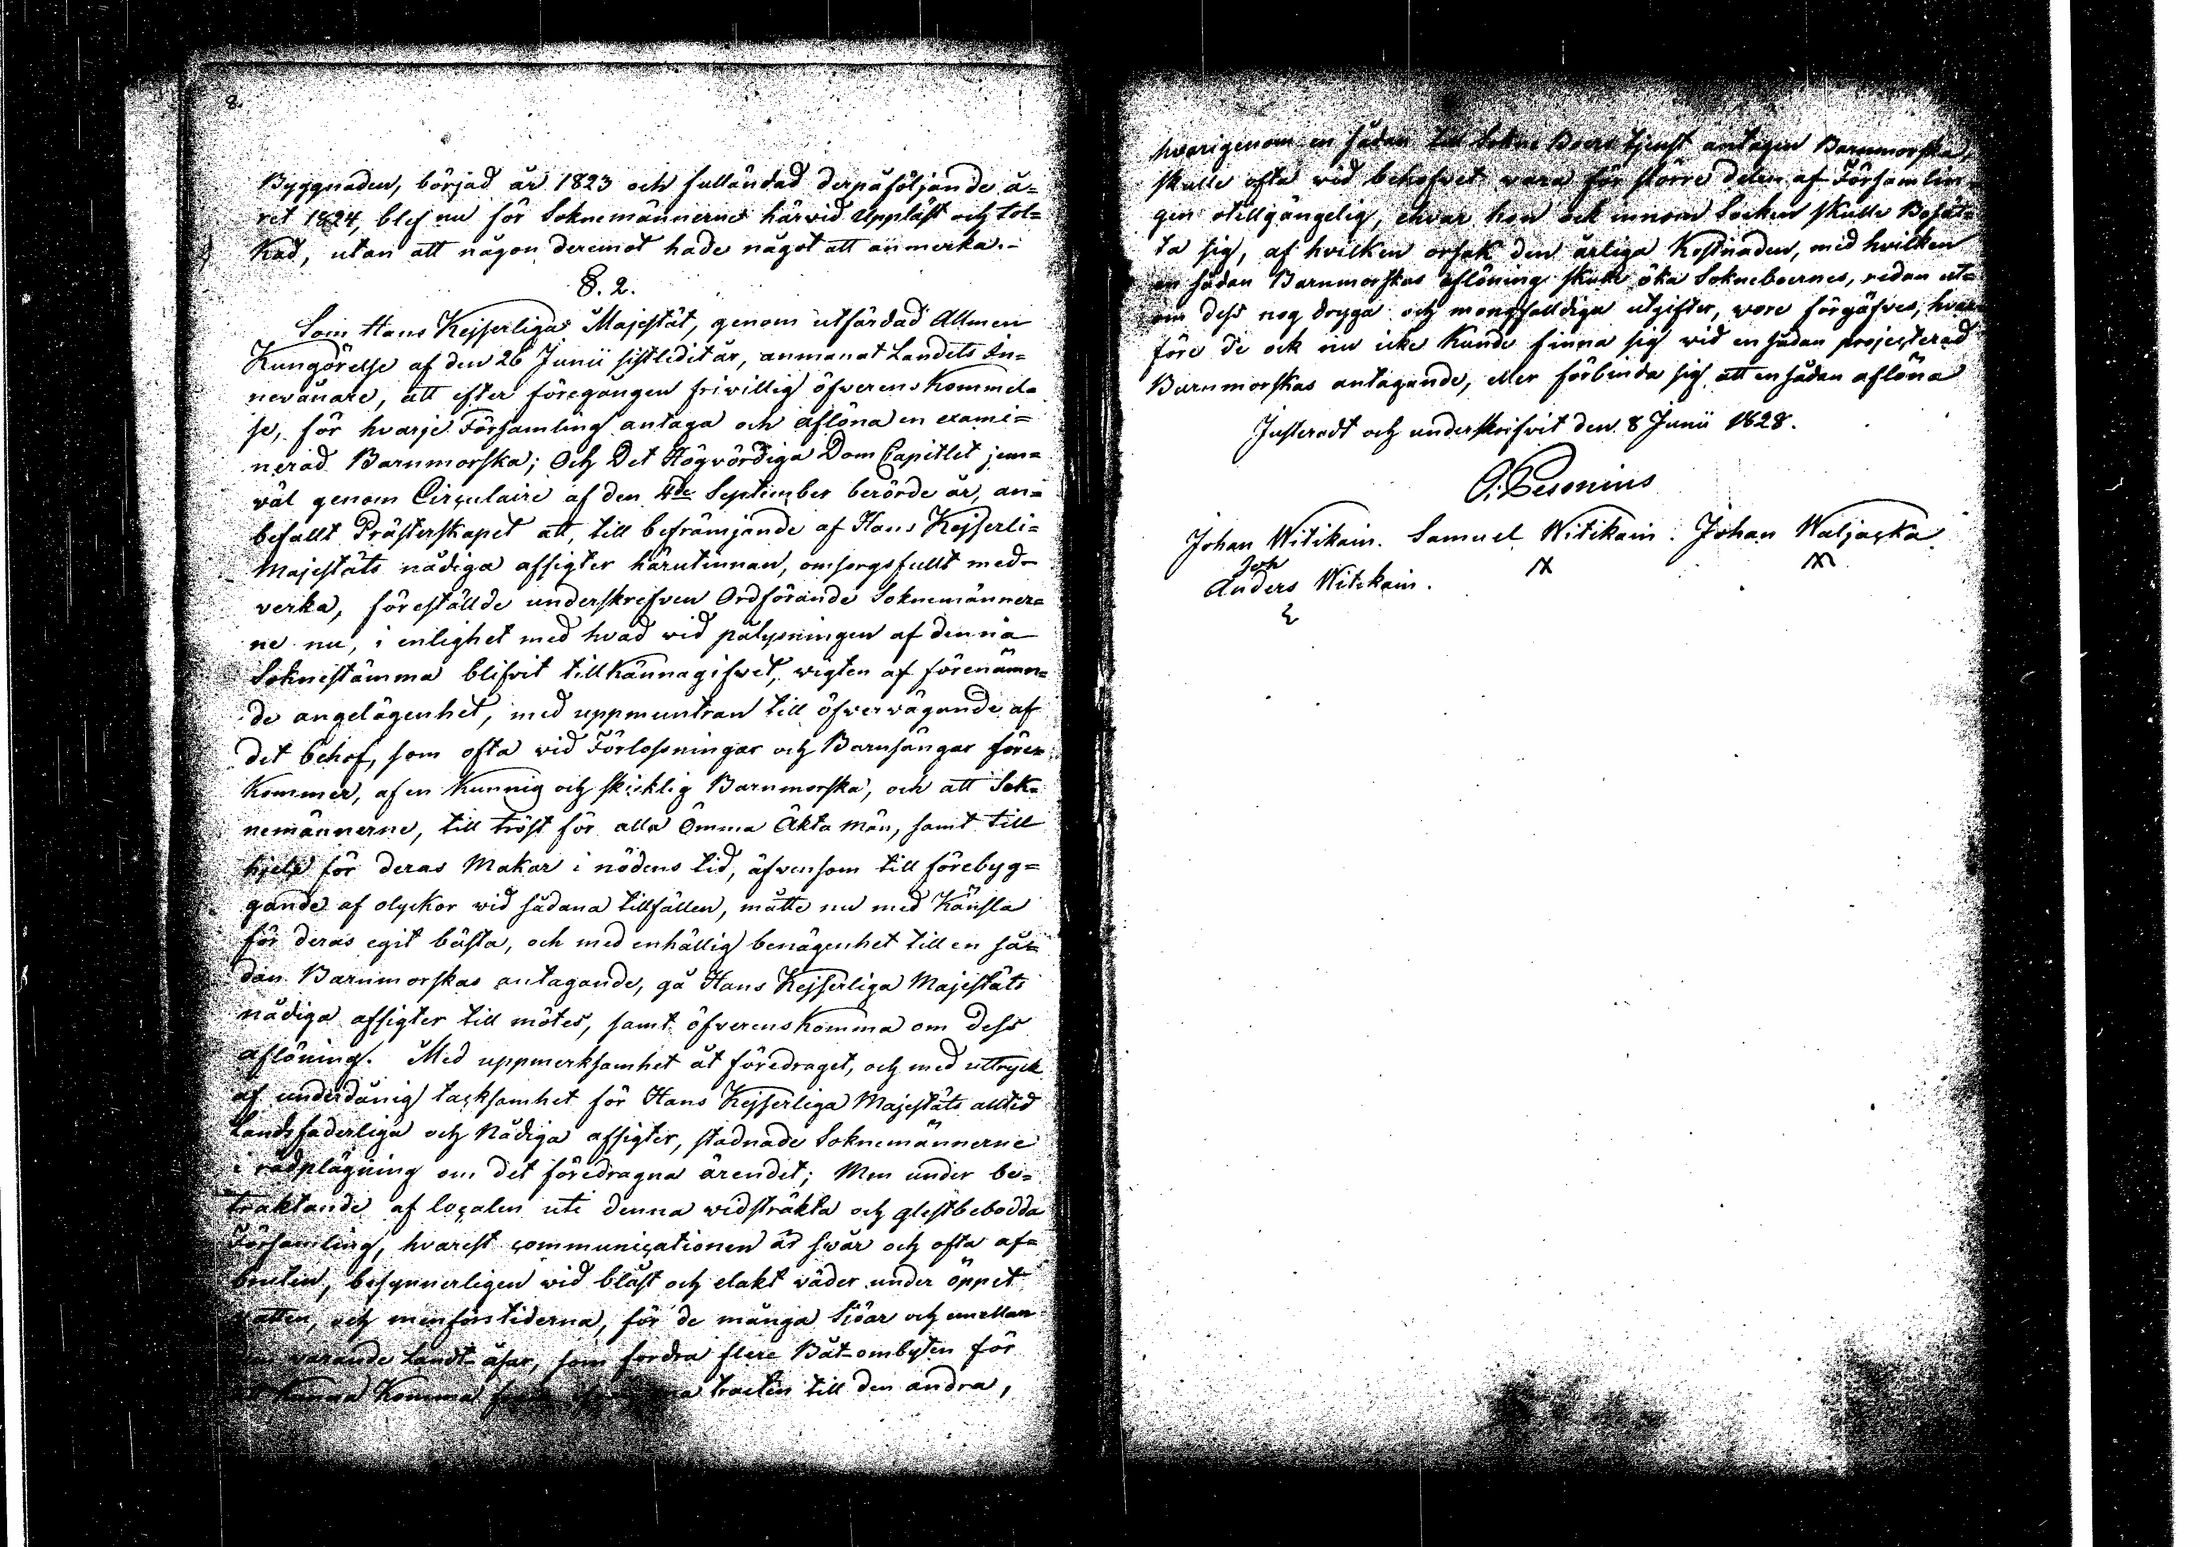 2.
Byggnaden, börjad år 1823 och fulländad derpåföljande å=
ret 1824, blef nu för Soknemännerne härvid uppläst och tol=
kad, utan att någon deremot hade något att anmerka.-
§. 2.
Som Hans Kejserliga Majestät, genom utfärdad Allmen
Kungörelse af den 26 Junii sistledit år, anmanat Landets In=
nevånare, att efter föregången frivillig öfverenskommel=
se, för hvarje Församling antaga och aflöna en exami=
nerad Barnmorska; Och Det Högvördiga Dom Capitlet jem=
väl genom Circulaire af den 4de September berörde år, an=
befallt Prästerskapet att, till befrämjande af Hans Kejserli=
Majestäts nådiga afsigter härutinnan, omsorgsfullt med=
verka, föreställde underskrefven Ordförande Soknemänner=
ne nu, i enlighet med hvad vid pålysningen af denna
Soknestämma blifvit tillkännagifvet, vigten af förenämn=
de angelägenhet, med uppmuntran till öfvervägande af
det behof, som ofta vid Förlossningar och Barnsängar före=
kommer, af en kunnig och skicklig Barnmorska, och att Sok=
nemännerne, till tröst för alla Ömma Äkta män, samt till
hjelp för deras Makar i nödens tid, äfvensom till förebyg=
gande af olyckor vid sådana tillfällen, måtte nu med Känsla
för deras egit bästa, och med enhällig benägenhet till en så=
dan Barnmorskas antagande, gå Hans Kejserliga Majestäts
nådiga afsigter till mötes, samt öfverenskomma om dess
aflöning. Med uppmerksamhet åt föredraget, och med uttryck
af underdånig tacksamhet för Hans Kejserliga Majestäts alltid
Landsfaderliga och Nådiga afsigter, stadnade Soknemännerne
i rådplägning om det föredragna ärendet; Men under be=
traktande af localen uti denna vidsträkta och glestbebodda
Församling, hvarest communicationen är svår och ofta af=
bruten, besynnerligen vid blåst och elakt väder under öppet
vatten, och menförstiderna, för de många Sjöar och emellan
varande Landt-åsar, som fordra flere Båt-ombyten för
att kunna komma från ena tracten till den andra,
hvarigenom en sådan till Sokne Boers tjenst antagen Barnmorska,
skulle ofta vid behofvet vara för större delen af Församlin=
gen otillgängelig, ehvar hon ock innom Socken skulle Bosät=
ta sig, af hvilken orsak den årliga Kostnaden, med hvilken
en sådan Barnmorskas aflöning skulle öka Sokneboernes, redan ut=
om dess nog dryga och mongfalldiga utgifter, vore förgäfves, hvar=
före de ock nu icke kunde finna sig vid en sådan projecterad
Barnmorskas antagande, eller förbinda sig att en sådan aflöna
Justeradt och underskrifvit den 8 Junii 1828.
Johan Witikain. Samuel Witikain. Johan Waljacka.
Anders Witikain.